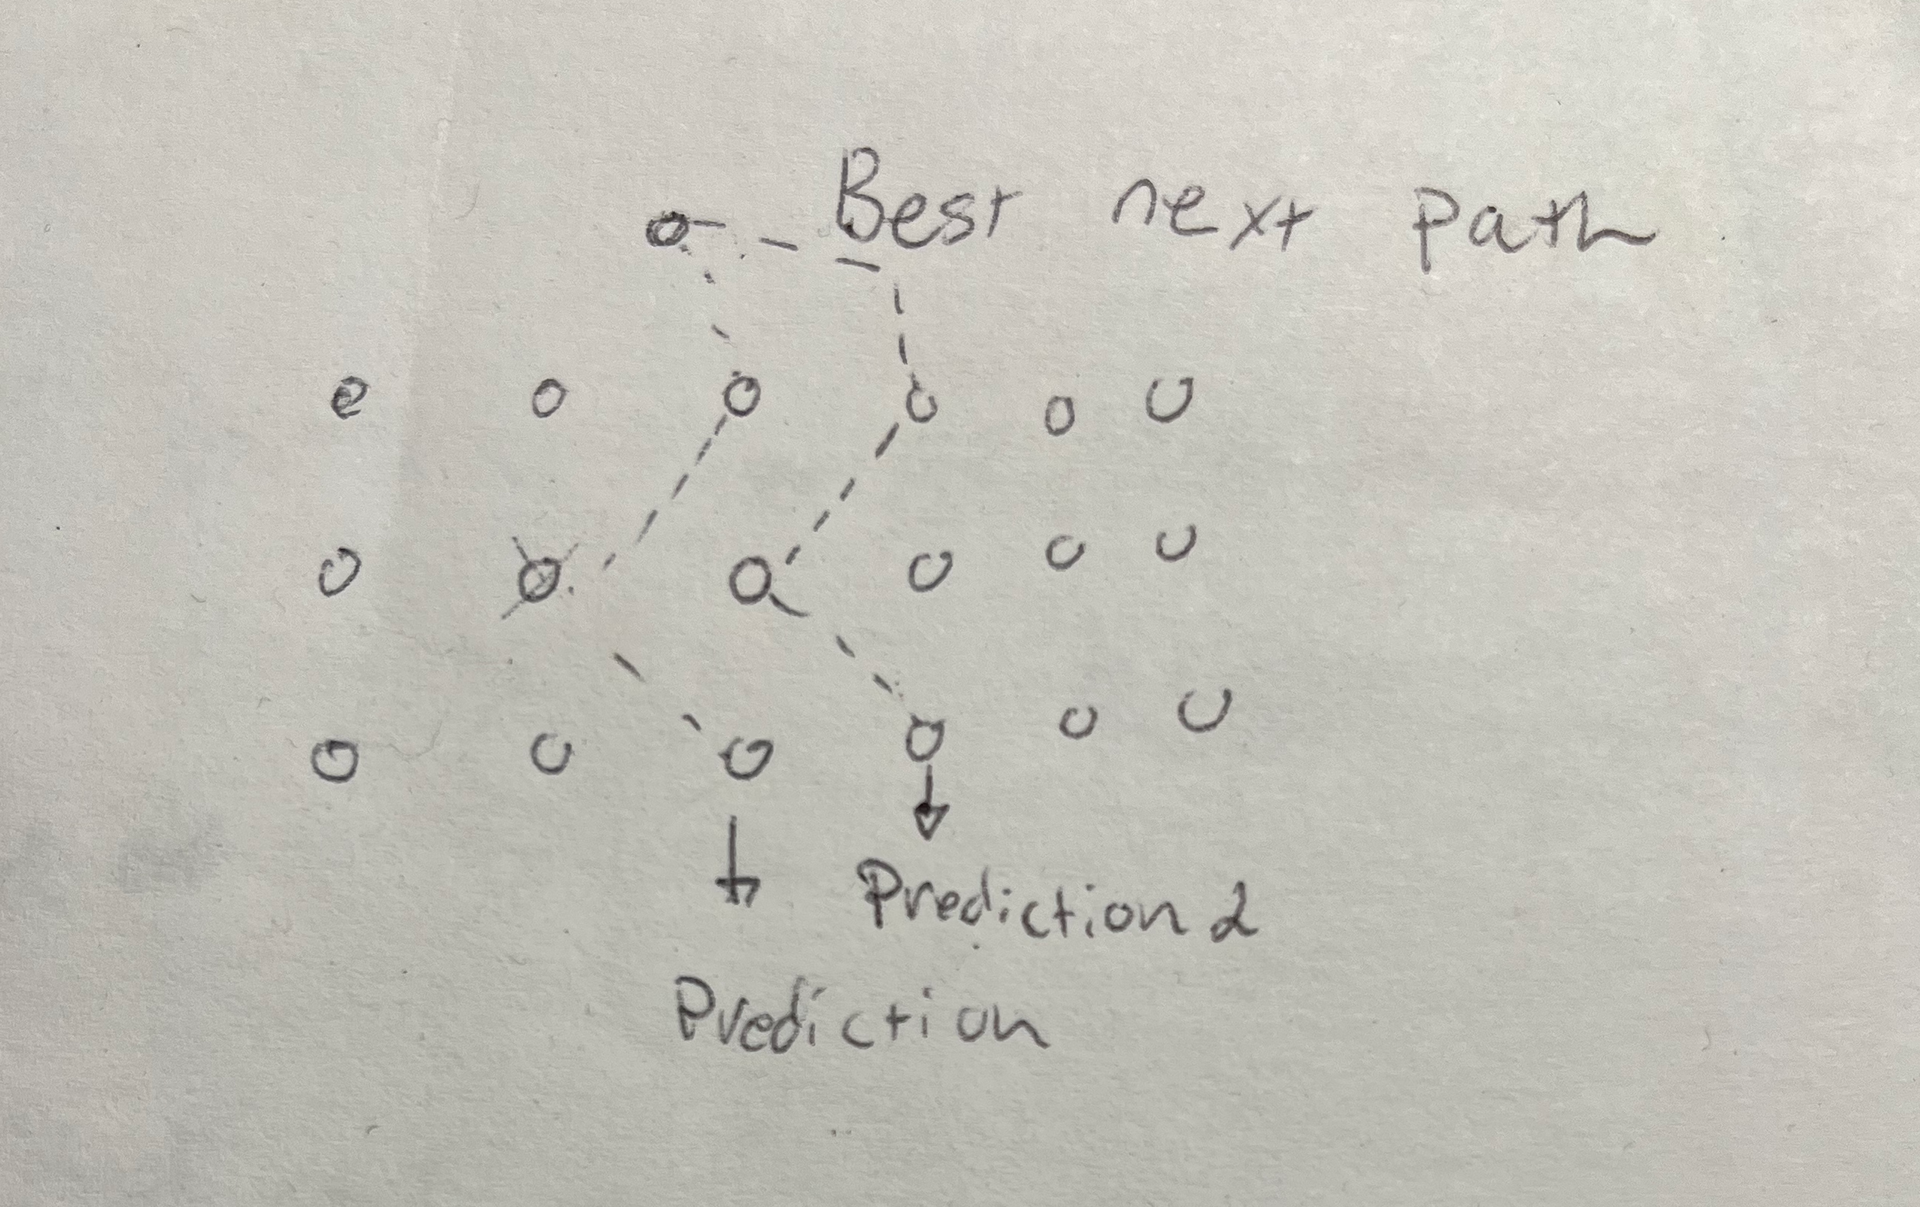 Best next path
Prediction 2
Prediction